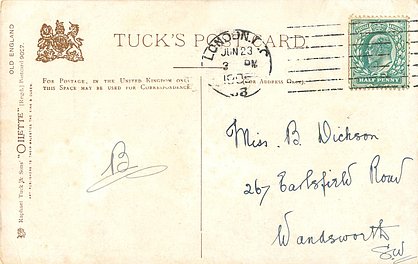 OLD ENGLAND
TUCK'S POST CARD
FOR POSTAGE, IN THE UNITED KINGDOM ONLY,
THIS SPACE MAY BE USED FOR CORRESPONDENCE
(FOR ADDRESS ONLY.)
LONDON.
JUN 23
3 PM
HALF PENNY
B
Miss. B. Dickson
267 Earlsfield Road
Wandsworth
SW
Raphael Tuck & Sons' "OILETTE" [Regd.] Postcard 9027.